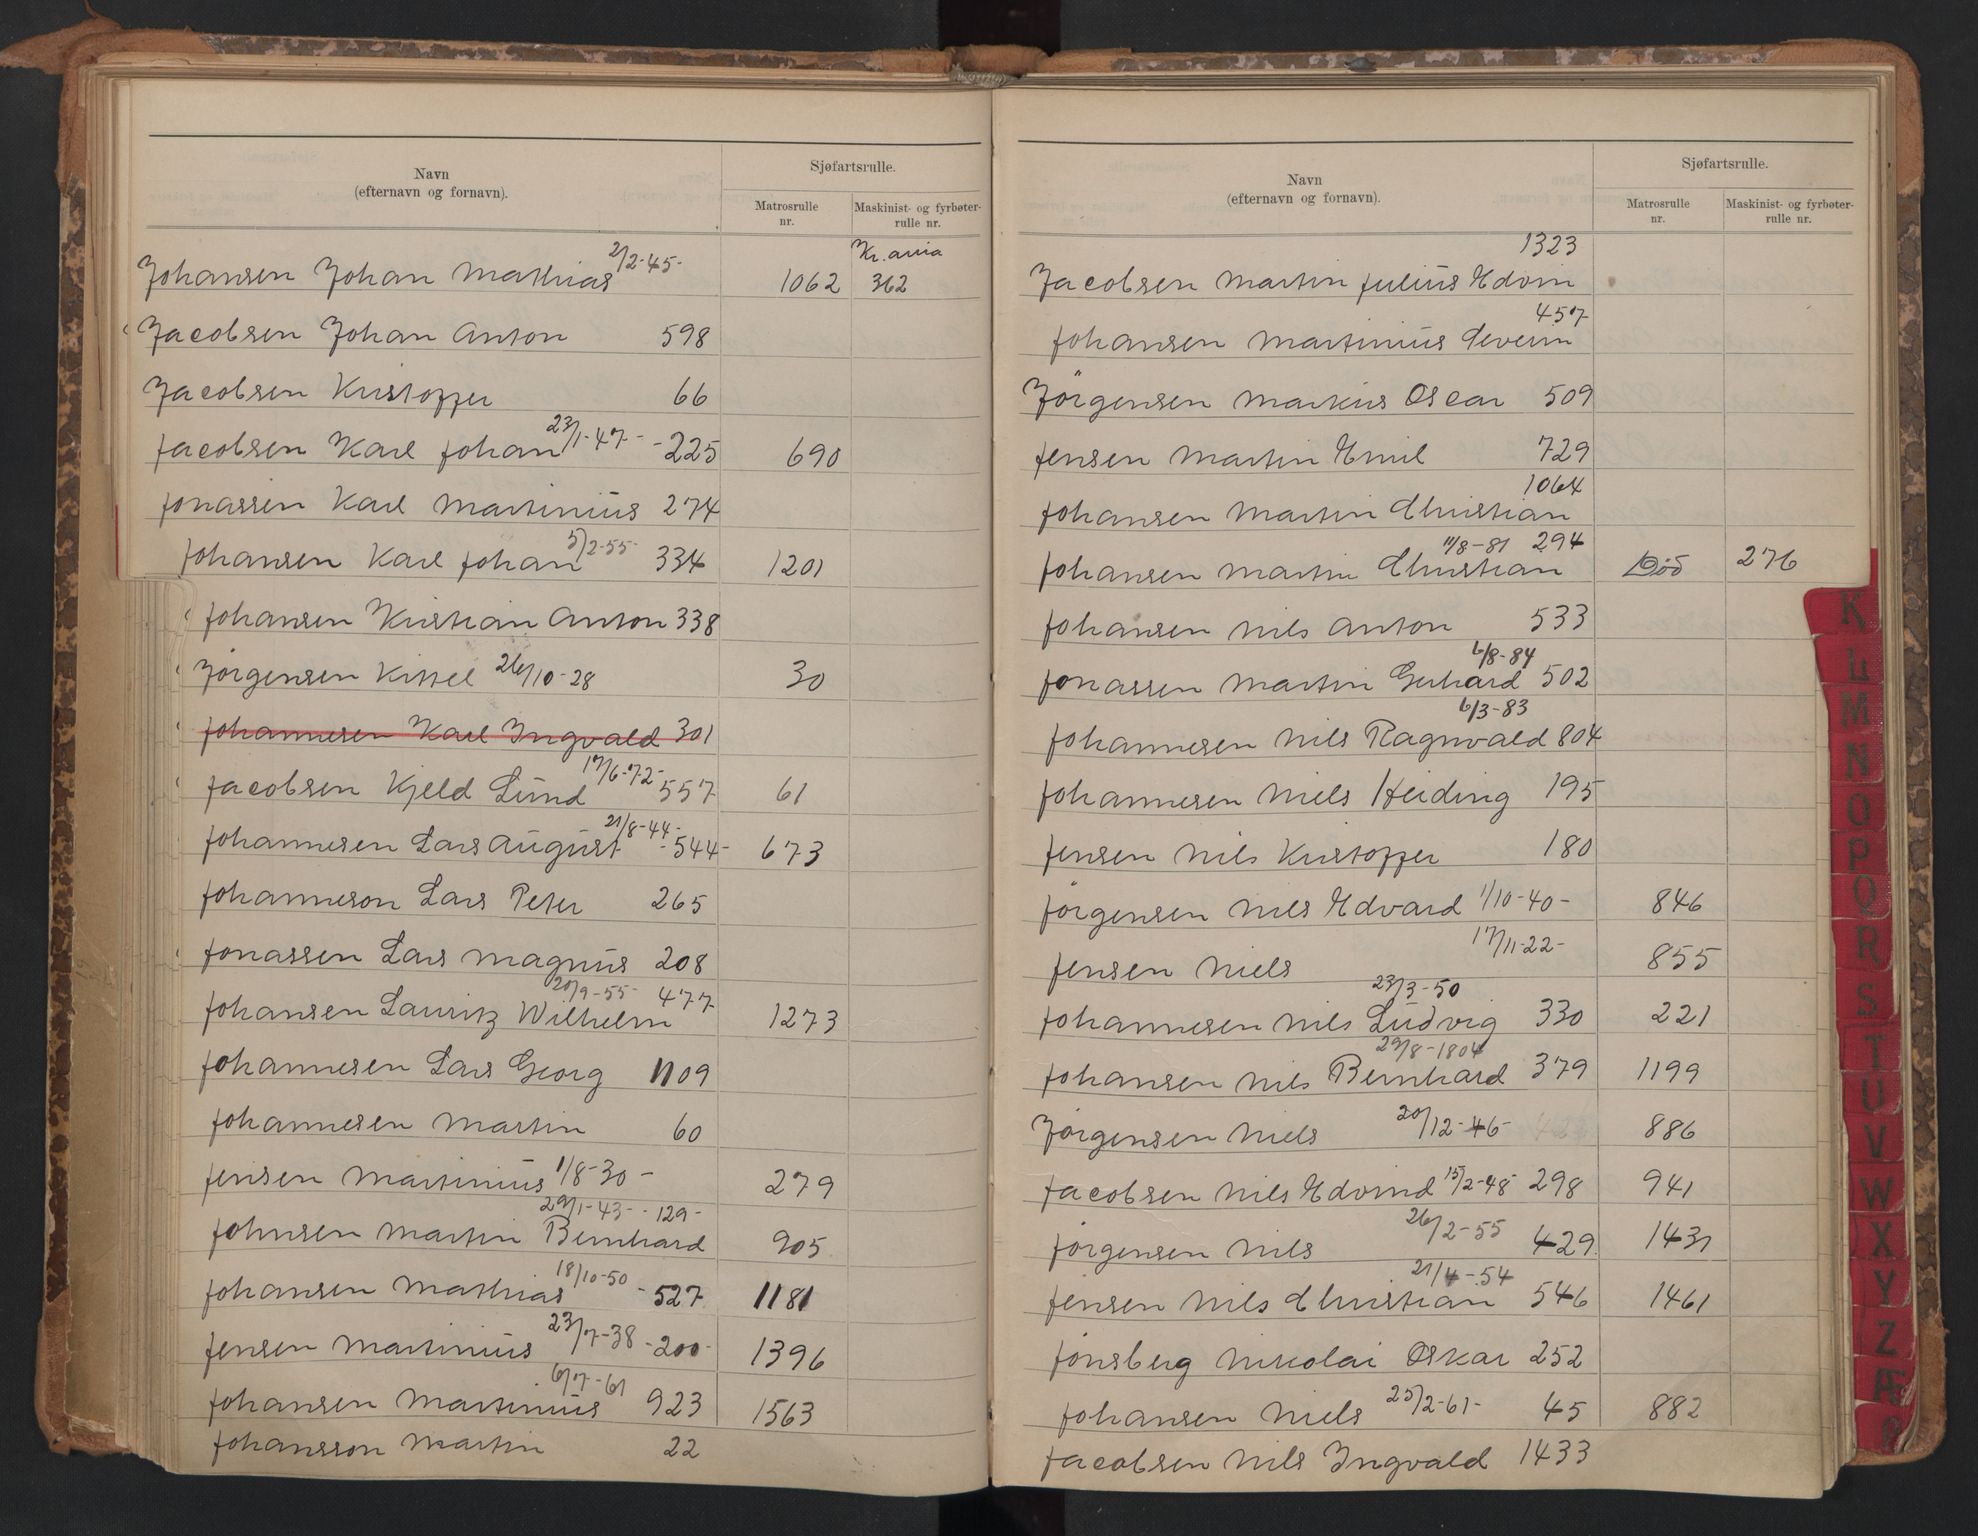 Navn
(efternavn og fornavn).
Sjøfartsrulle.
Matrosrulle
nr.
Maskinist- og fyrbøter-
rulle nr.
Kr.ania
Johansen Johan Mathias 2/2-45- 1062 362
Jacobsen Johan Anton 598
Jacobsen Kristoffer 66
Jacobsen Karl Johan 23/1-47- -225 690
Jonassen Karl Martinius 274
Johansen Karl Johan 5/2-55- 334 1201
Johansen Kristian Anton 338
Jørgensen Kittel 26/10-28 30
Johannesen Karl Ingvald 301
Jacobsen Kjeld Lund 17/6-72- 557 61
Johannesen Lars August 21/8-44- -544- 673
Johanneson Lars Peter 265
Jonassen Lars Magnus 208
Johansen Lauritz Wilhelm 20/9-55- 477 1273
Johannesen Lars Georg 1109
Johannesen Martin 60
Jensen Martinius 1/8-30- 279
Johnsen Martin Bernhard 29/1-43- -129- 905
Johansen Mathias 18/10-50 -527 1181
Jensen Martinius 23/7-38 -200- 1396
Johansen Martinius 6/7-61 923 1563
Johansson Martin 22
Navn
(efternavn og fornavn).
Sjøfartsrulle.
Matrosrulle
nr.
Maskinist- og fyrbøter-
rulle nr.
Jacobsen Martin Julius Edvin 1323
Johansen Martinius Severin 457
Jørgensen Markus Oscar 509
Jensen Martin Emil 729
Johansen Martin Christian 1064
Johansen Martin Christian 11/8-81 294 Død 276
Johansen Nils Anton 533
Jonassen Martin Gerhard 6/8-84 502
Johannesen Nils Ragnvald 6/3-83 804
Johannesen Niels Heiding 195
Jensen Nils Kristoffer 180
Jørgensen Nils Edvard 1/10-40- 846
Jensen Niels 17/11-22- 855
Johannesen Nils Ludvig 23/3-50 330 221
Johansen Nils Bernhard 29/8-1804 379 1199
Jørgensen Niels 20/12-46- 886
Jacobsen Nils Edvind 15/2-48- 298 941
Jørgensen Nils 26/2-55 429 1431
Jensen Nils Christian 21/4-54 546 1461
Jonsberg Nikolai Oskar 252
Johansen Niels 25/2-61- 45 882
Jacobsen Nils Ingvald 1433
K
L
M
N
O
P
Q
R
S
T
U
V
W
X
Y
Z
Æ
Ø